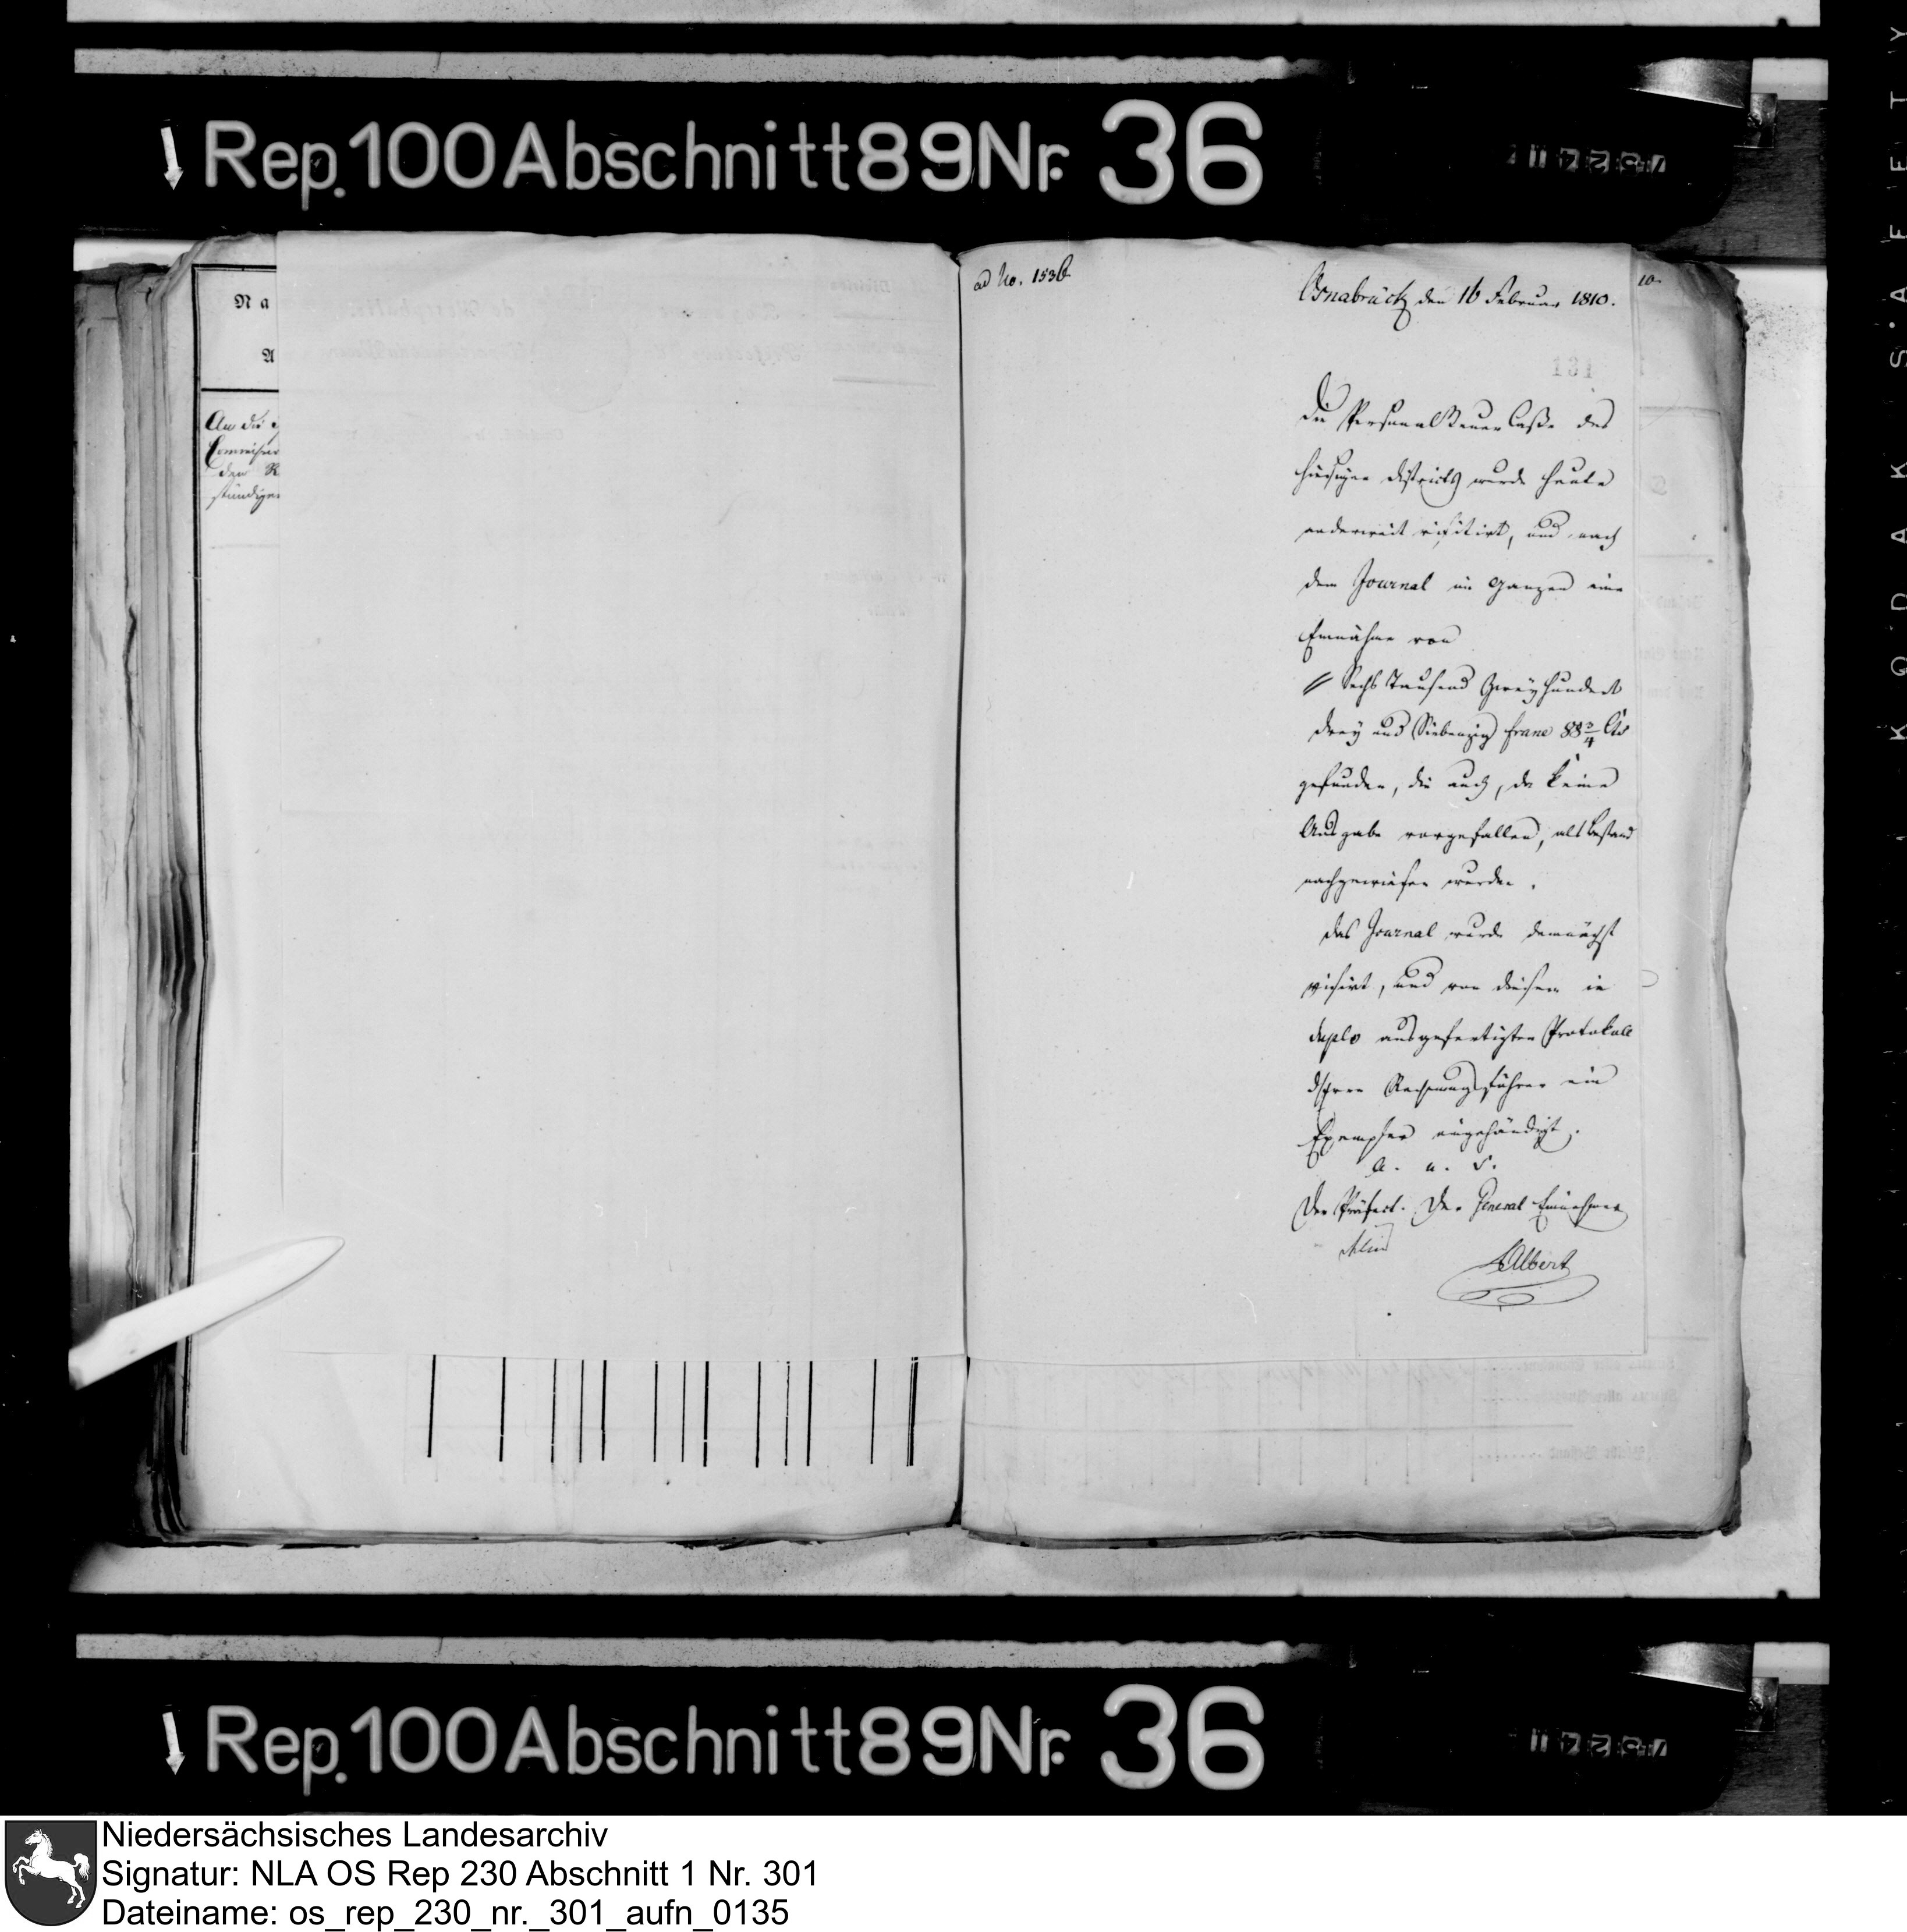 Rep.100Abschnitt89Nr. 36
Na
A
An die
Commissar
den R
ständigen
ad No. 1536
Osnabrück den 16 Februar 1810.
10.
131
Die Personalsteuer Casse des
hiesigen Districts wurde heute
anderweit visitirt, und nach
dem Journal im Ganzen eine
Einnahme von
// Sechs Tausend Zweyhundert
drey und Siebenzig franc 88 3/4 Cts
gefunden, die auch, da keine
Ausgabe vorgefallen, als Bestand
nachgewiesen wurden.
Das Journal wurde demnächst
visirt, und von diesem in
duplo ausgefertigten Protokoll
Rechnungsführer ein
Exemplar eingehändigt.
a. u. s.
Der Präfect. Der General Einnehmer
Albert
Rep.100Abschnitt89Nr. 36
Niedersächsisches Landesarchiv
Signatur: NLA OS Rep 230 Abschnitt 1 Nr. 301
Dateiname: os_rep_230_nr._301_aufn_0135
KODAK·SAFETY